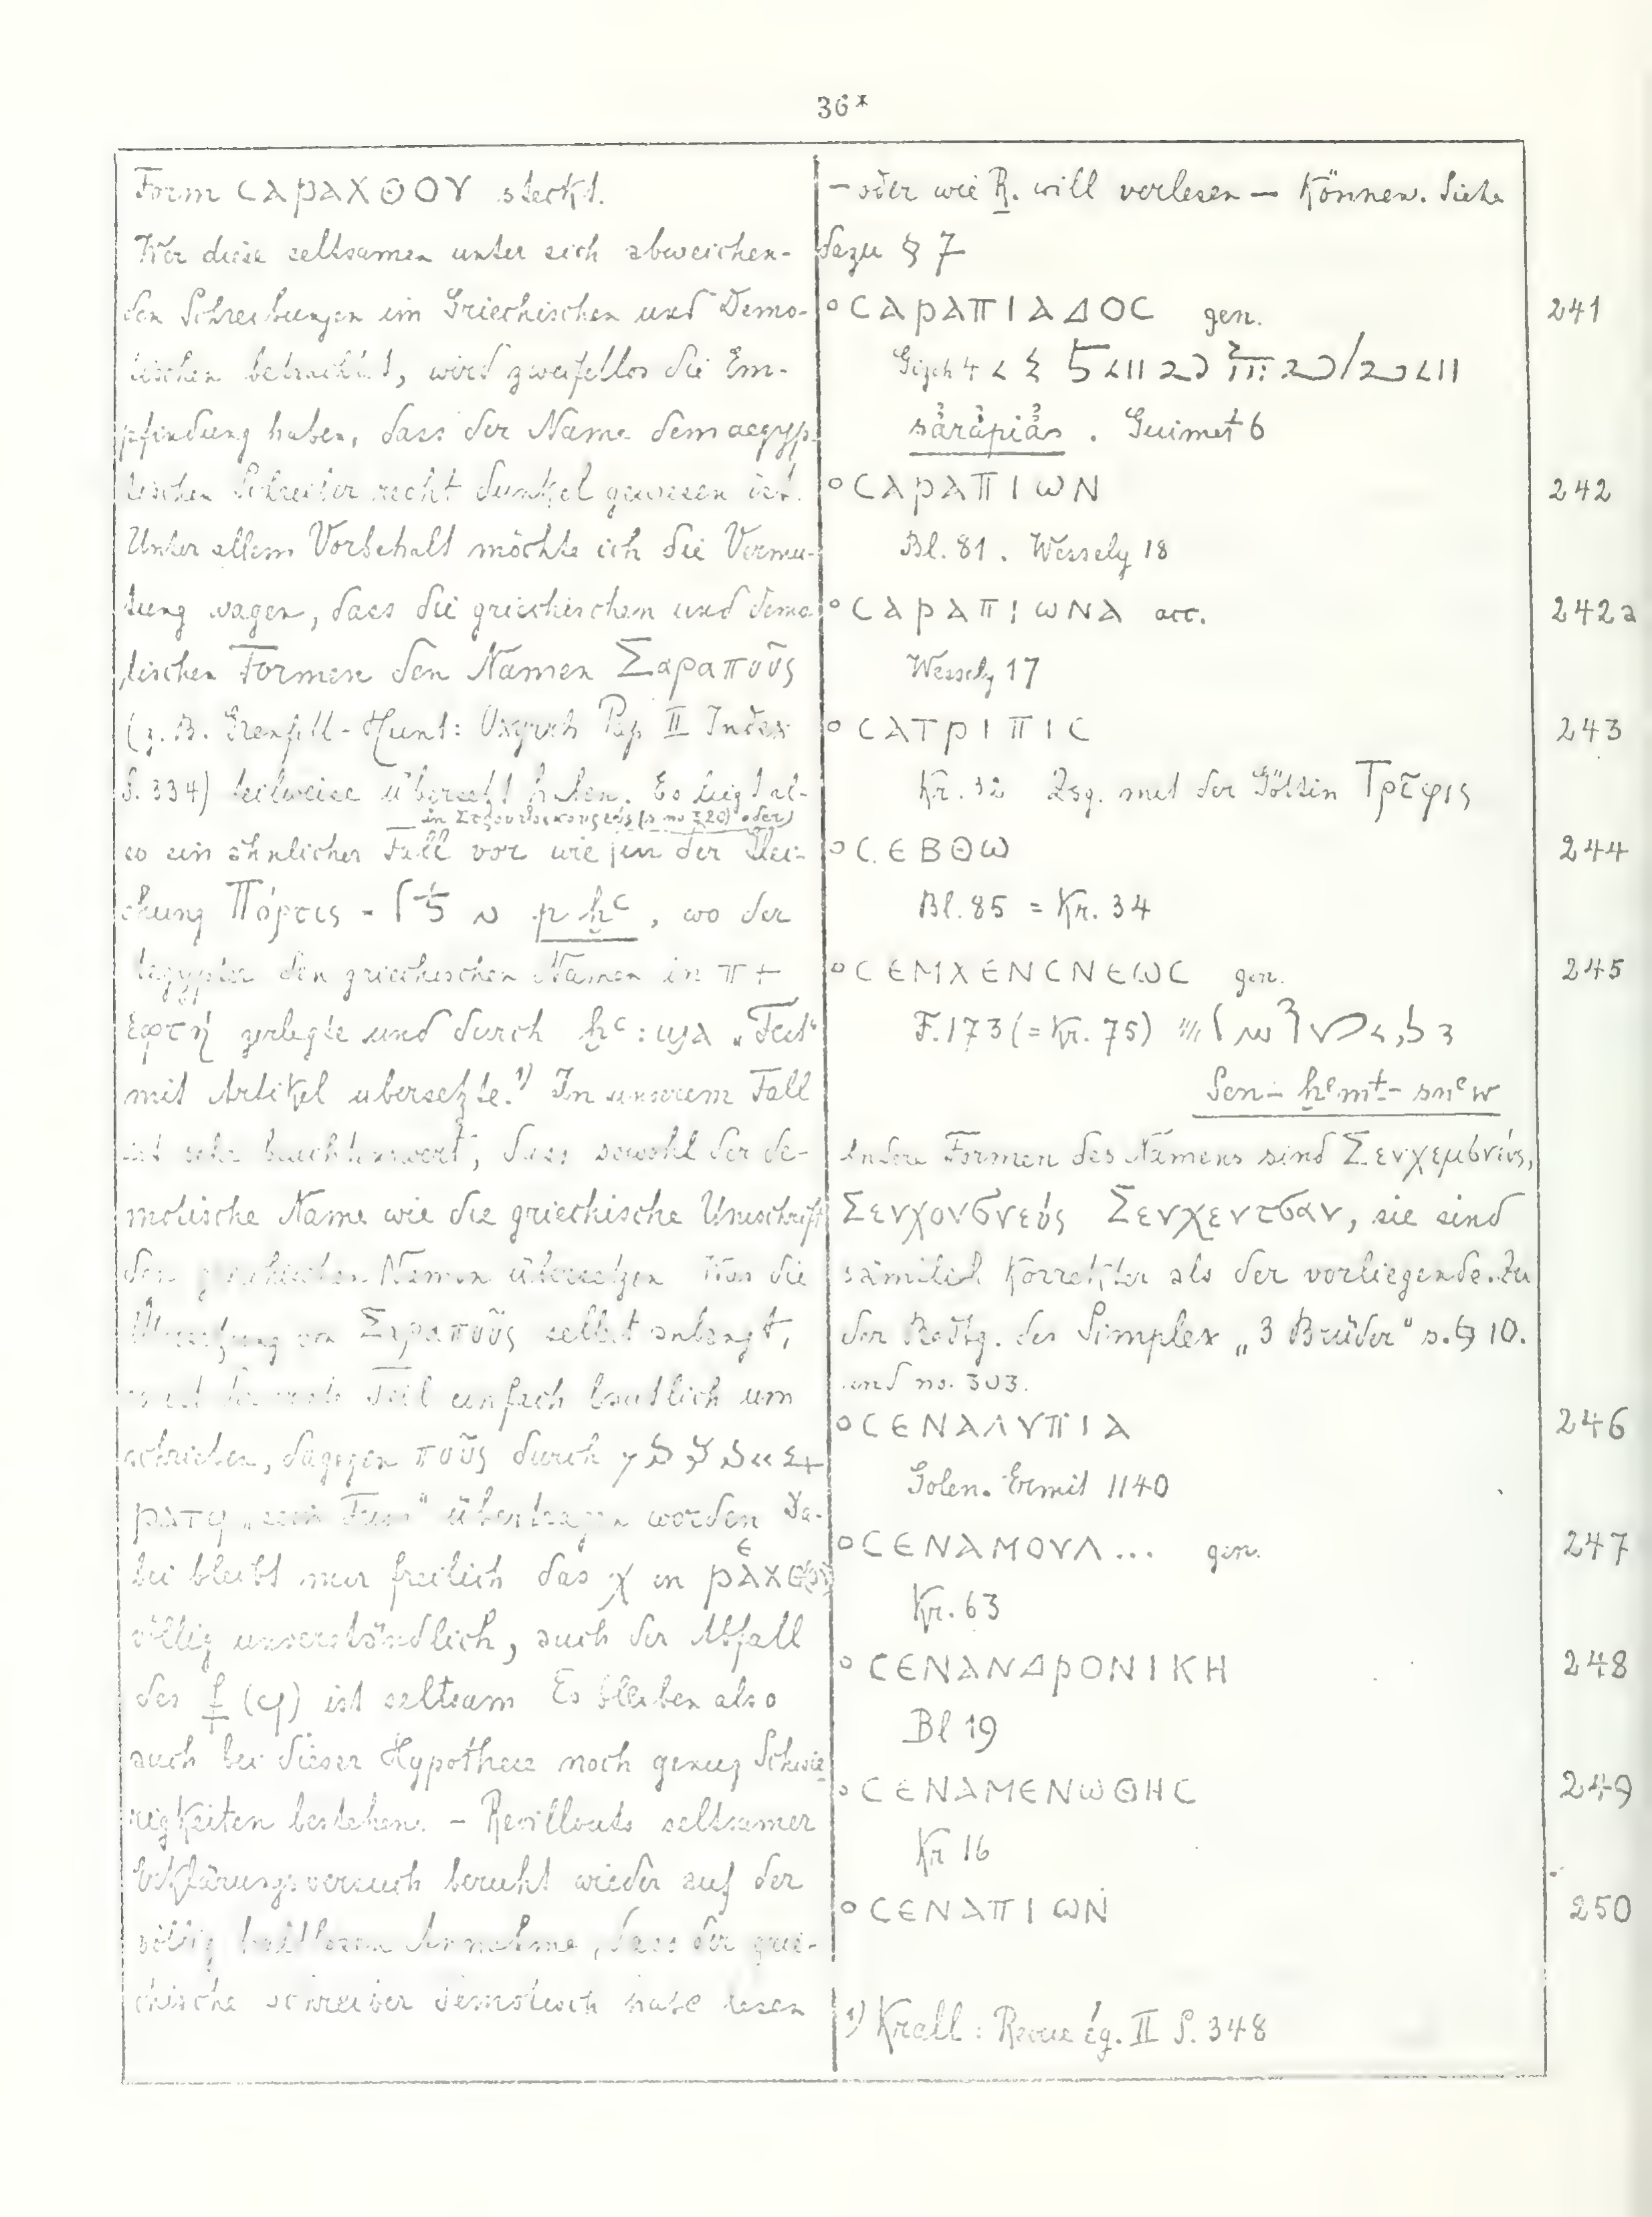 36*
Form CΑΡΑΧΘΟΥ steckt.
Wer diese seltsamen unter sich abweichen-
den Schreibungen im Griechischen und Demo-
tischen betrachtet, wird zweifellos die Em-
pfindung haben, dass der Name dem aegyp-
tischen Schreiber recht dunkel gewesen ist.
Unter allem Vorbehalt möchte ich die Vermu-
tung wagen, dass die griechischen und demo
tischen Formen den Namen Σαραποῦς
(z. B. Grenfell-Hunt: Oxyrch Pap II Index
S. 334) teilweise übersetzt haben. Es liegt al-
(s no 320) oder
so ein ähnlicher Fall vor wie in der Glei-
chung Πόρτις = p ḫᶜ, wo der
Aegypter den griechischen Namen in π +
ἑορτή zerlegte und durch ḫᶜ : ϣⲁ „Fest“
mit Artikel übersetzte.¹⁾ In unserem Fall
ist sehr beachtenswert, dass sowohl der de-
motische Name wie die griechische Umschrift
den griechischen Namen übersetzen Was die
Übersetzung von Σαραποῦς selbst anlangt,
Teil einfach lautlich um
schrieben, dagegen ποῦς durch
ⲣⲁⲧϥ „sein Fuss“ übertragen worden Da-
bei bleibt mir freilich das χ in
völlig unverständlich, auch der Abfall
des f (ϥ) ist seltsam Es bleiben also
auch bei dieser Hypothese noch genug Schwie
rigkeiten bestehen. – Revillouts seltsamer
Erklärungsversuch beruht wieder auf der
völlig haltlosen Annahme, dass der grie-
chische Schreiber demotisch habe lesen
– oder wie R. will verlesen – können. Siehe
dazu § 7
° CΑΡΑΠΙΑΔΟC gen. 241
Gizeh 4
såråpiås . Guimet 6
° CΑΡΑΠΙωΝ 242
Bl. 81. Wessely 18
° CΑΡΑΠΙωΝΑ acc. 242a
Wessely 17
° CΑΤΡΙΠΙC 243
Kr. 32 Zsg. mit der Göttin Τρῖφις
° CΕΒΘω 244
Bl. 85 = Kr. 34
° CΕΜΧΕΝCΝΕωC gen. 245
F. 173 (= Kr. 75)
Sen-ḫᵉmt-snᵉw
Andere Formen des Namens sind Σενχεμσνεύς,
Σενχονσνεύς Σενχεντσαν, sie sind
sämtlich korrekter als der vorliegende. Zu
der Bedtg. des Simplex „3 Brüder“ s. § 10.
und no. 303.
° CΕΝΑΛΥΠΙΑ 246
Golen. Ermit 1140
° CΕΝΑΜΟΥΛ... gen. 247
Kr. 63
° CΕΝΑΝΔΡΟΝΙΚΗ 248
Bl 19
° CΕΝΑΜΕΝωΘΗC 249
Kr 16
° CΕΝΑΠΙωΝ 250
¹⁾ Krall : Revue ég. II S. 348